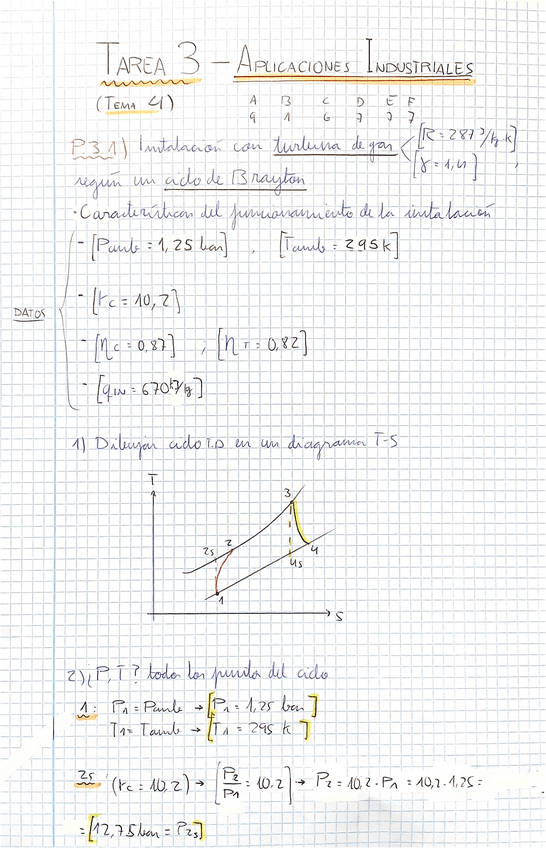 TAREA 3 - APLICACIONES INDUSTRIALES
(TEMA 4)
A B C D E F
9 1 6 7 7 7
P.3.1) Instalación con turbina de gas [R = 287 J/kg·K]
[γ = 1,4],
según un ciclo de Brayton
· Características del funcionamiento de la instalación
DATOS
- [Pamb = 1,25 bar] , [Tamb = 295 K]
- [rc = 10,2]
- [ηc = 0,87] , [ηT = 0,82]
- [qIN = 670 kJ/kg]
1) Dibujar ciclo T.D en un diagrama T-S
T
3
2s 2
4
4s
1
S
2) ¿P,T? todos los puntos del ciclo
1: P1 = Pamb → [P1 = 1,25 bar]
T1 = Tamb → [T1 = 295 K]
2s (rc = 10.2) → [P2/P1 = 10.2] → P2 = 10.2 · P1 = 10,2 · 1,25 =
= [12,75 bar = P2s]